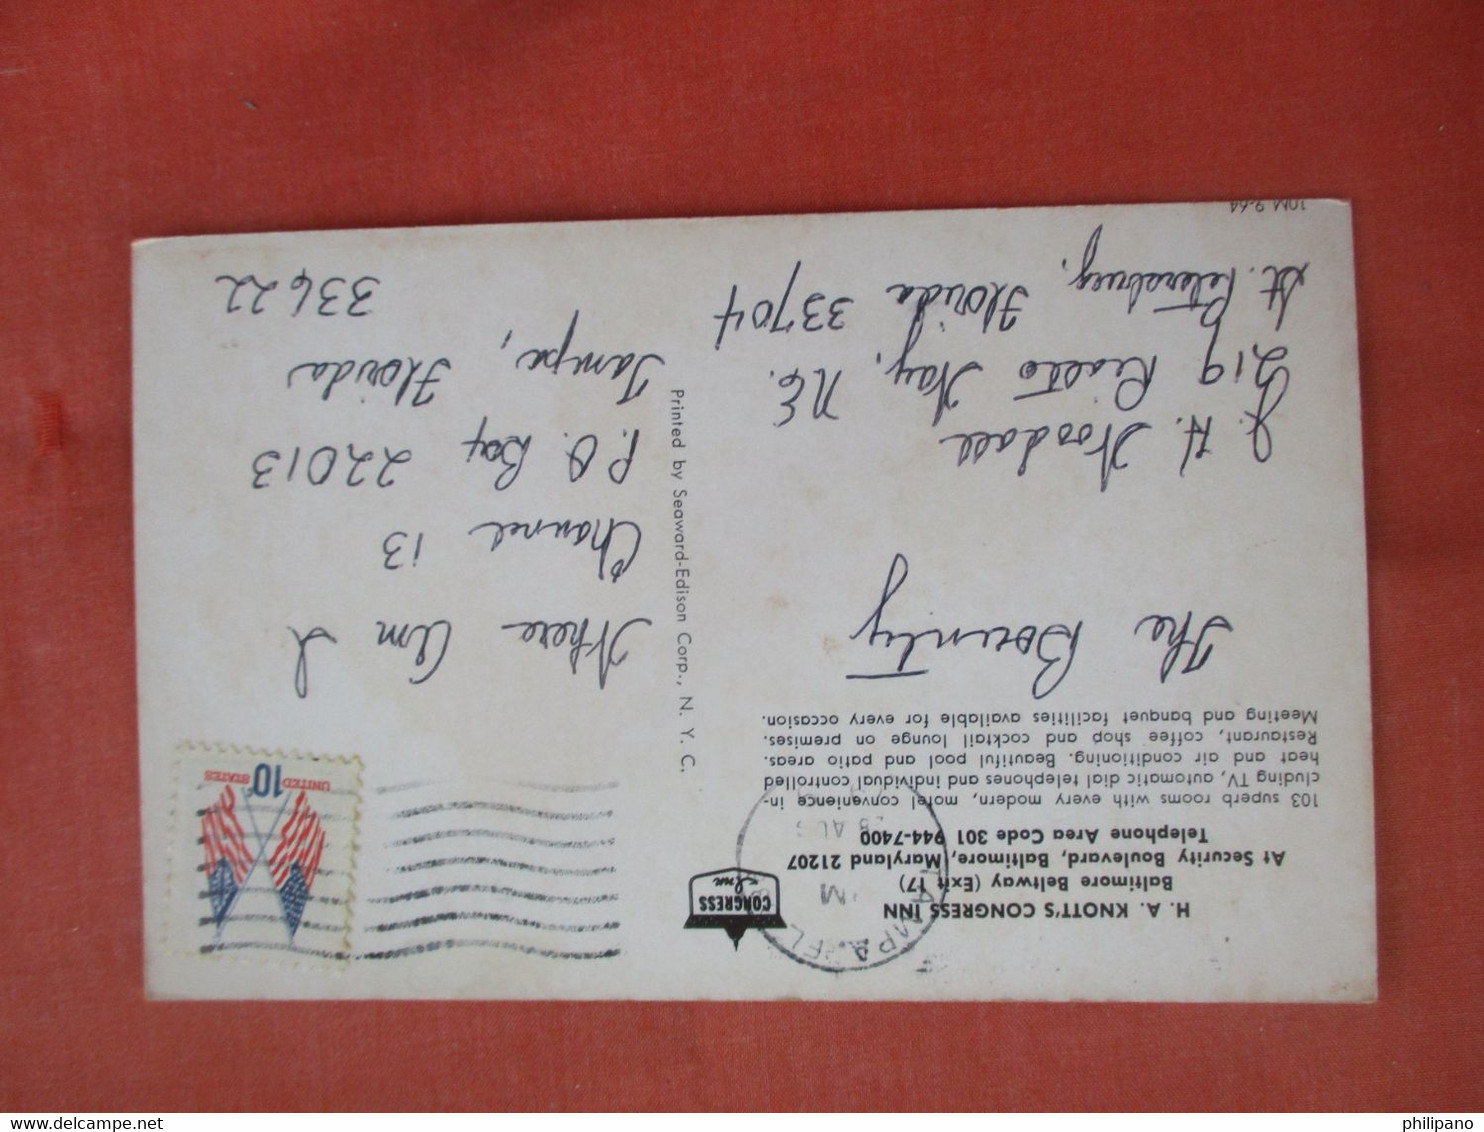 H. A. KNOTT'S CONGRESS INN
Baltimore Beltway (Exit 17)
At Security Boulevard, Baltimore, Maryland 21207
Telephone Area Code 301 944-7400
103 superb rooms with every modern, motel convenience in-
cluding TV, automatic dial telephones and individual controlled
heat and air conditioning. Beautiful pool and patio areas.
Restaurant, coffee shop and cocktail lounge on premises.
Meeting and banquet facilities available for every occasion.
The Bounty
J. H. Woodall
219 Rialto Way, N.E.
St. Petersburg, Florida 33704
10M 9-64
CONGRESS
Inn
TAMPA, FL
PM
28 AUG
Printed by Seaward-Edison Corp., N. Y. C.
UNITED STATES
10c
Where Am I
Channel 13
P.O. Box 22013
Tampa, Florida
33622
delcampe.net
philipano